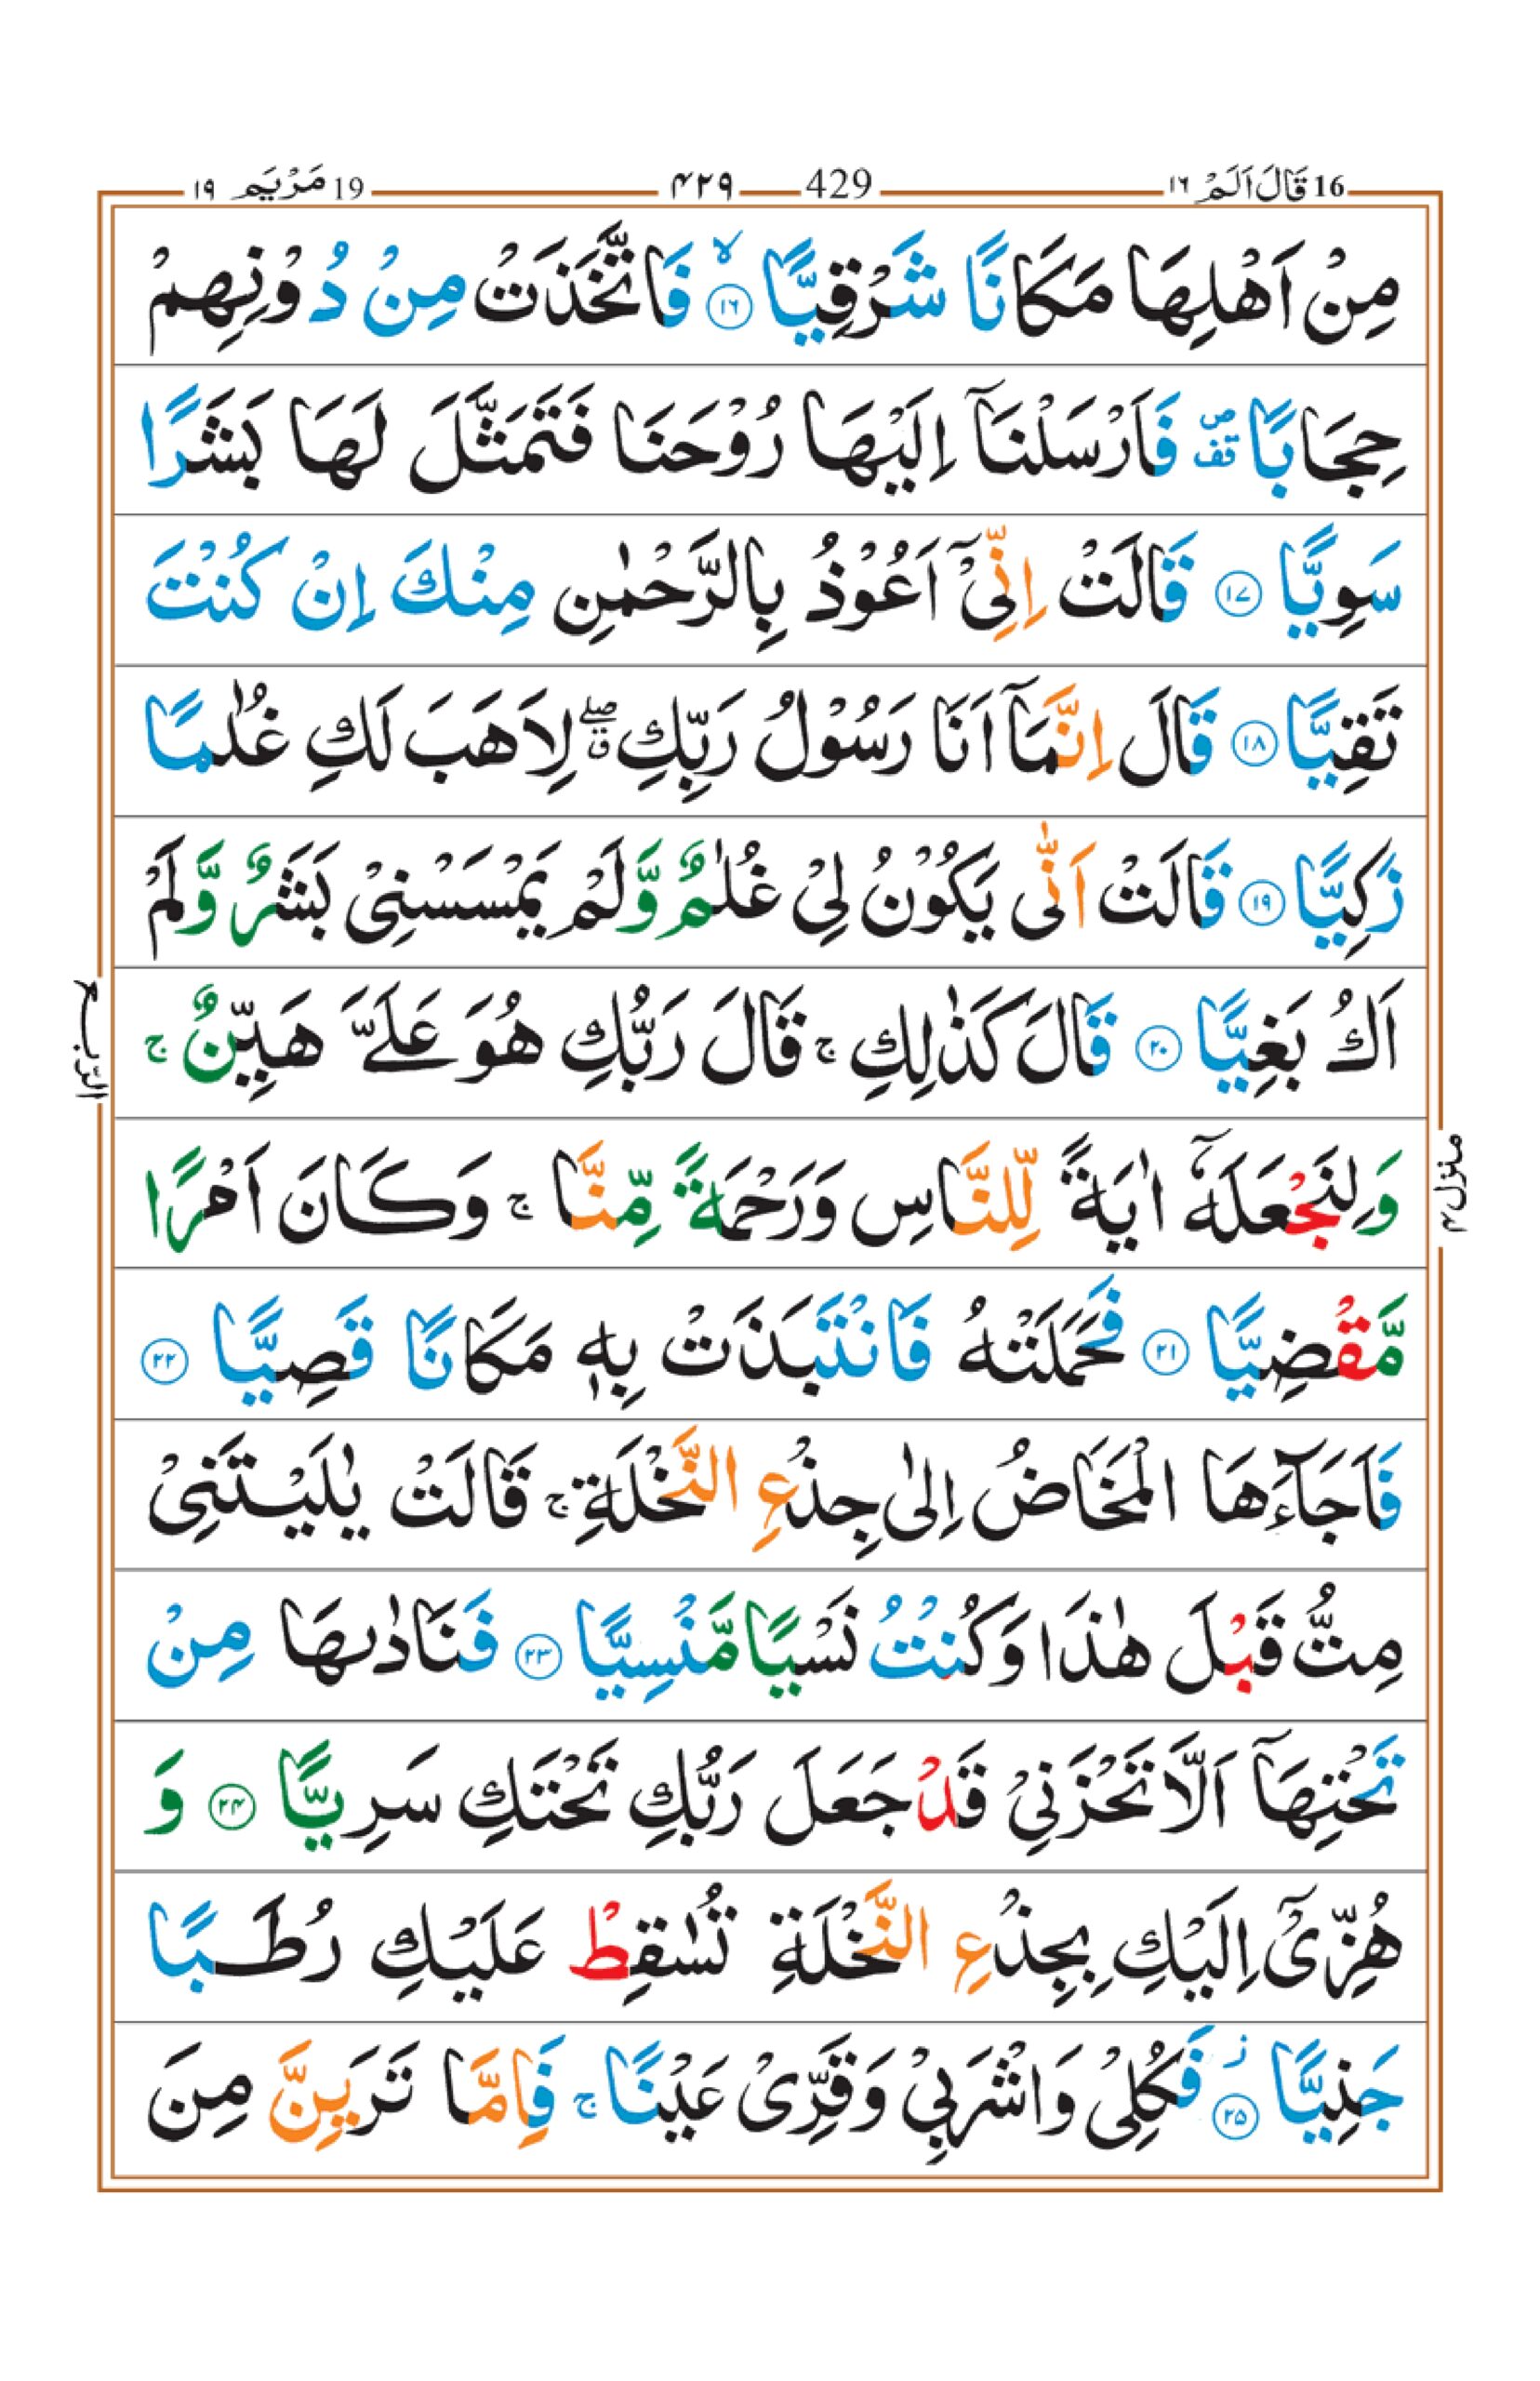 16 قَالَ اَلَمْ ١٦ 429 ۴۲۹ 19 مَرْيَم ١٩
مِنْ اَهْلِهَا مَكَانًا شَرْقِيًّا ۙ‏ ١٦ فَاتَّخَذَتْ مِنْ دُوْنِهِمْ
حِجَابًا ۪ قف فَاَرْسَلْنَاۤ اِلَيْهَا رُوْحَنَا فَتَمَثَّلَ لَهَا بَشَرًا
سَوِيًّا ١٧ قَالَتْ اِنِّىْۤ اَعُوْذُ بِالرَّحْمٰنِ مِنْكَ اِنْ كُنْتَ
تَقِيًّا ١٨ قَالَ اِنَّمَاۤ اَنَا رَسُوْلُ رَبِّكِ ۖق لِاَهَبَ لَكِ غُلٰمًا
زَكِيًّا ١٩ قَالَتْ اَنّٰى يَكُوْنُ لِىْ غُلٰمٌ وَّلَمْ يَمْسَسْنِىْ بَشَرٌ وَّلَمْ
اَكُ بَغِيًّا ٢٠ قَالَ كَذٰلِكِ ۚ قَالَ رَبُّكِ هُوَ عَلَىَّ هَيِّنٌ ۚ
وَلِنَجْعَلَهٗۤ اٰيَةً لِّلنَّاسِ وَرَحْمَةً مِّنَّا ۚ وَكَانَ اَمْرًا
مَّقْضِيًّا ٢١ فَحَمَلَتْهُ فَانْتَبَذَتْ بِهٖ مَكَانًا قَصِيًّا ٢٢
فَاَجَآءَهَا الْمَخَاضُ اِلٰى جِذْعِ النَّخْلَةِ ۚ قَالَتْ يٰلَيْتَنِىْ
مِتُّ قَبْلَ هٰذَا وَكُنْتُ نَسْيًا مَّنْسِيًّا ٢٣ فَنَادٰىهَا مِنْ
تَحْتِهَاۤ اَلَّا تَحْزَنِىْ قَدْ جَعَلَ رَبُّكِ تَحْتَكِ سَرِيًّا ٢۴ وَ
هُزِّىْۤ اِلَيْكِ بِجِذْعِ النَّخْلَةِ تُسٰقِطْ عَلَيْكِ رُطَبًا
جَنِيًّا ز ٢۵ فَكُلِىْ وَاشْرَبِىْ وَقَرِّىْ عَيْنًا ۚ فَاِمَّا تَرَيِنَّ مِنَ
الرّبع
منزل ۴